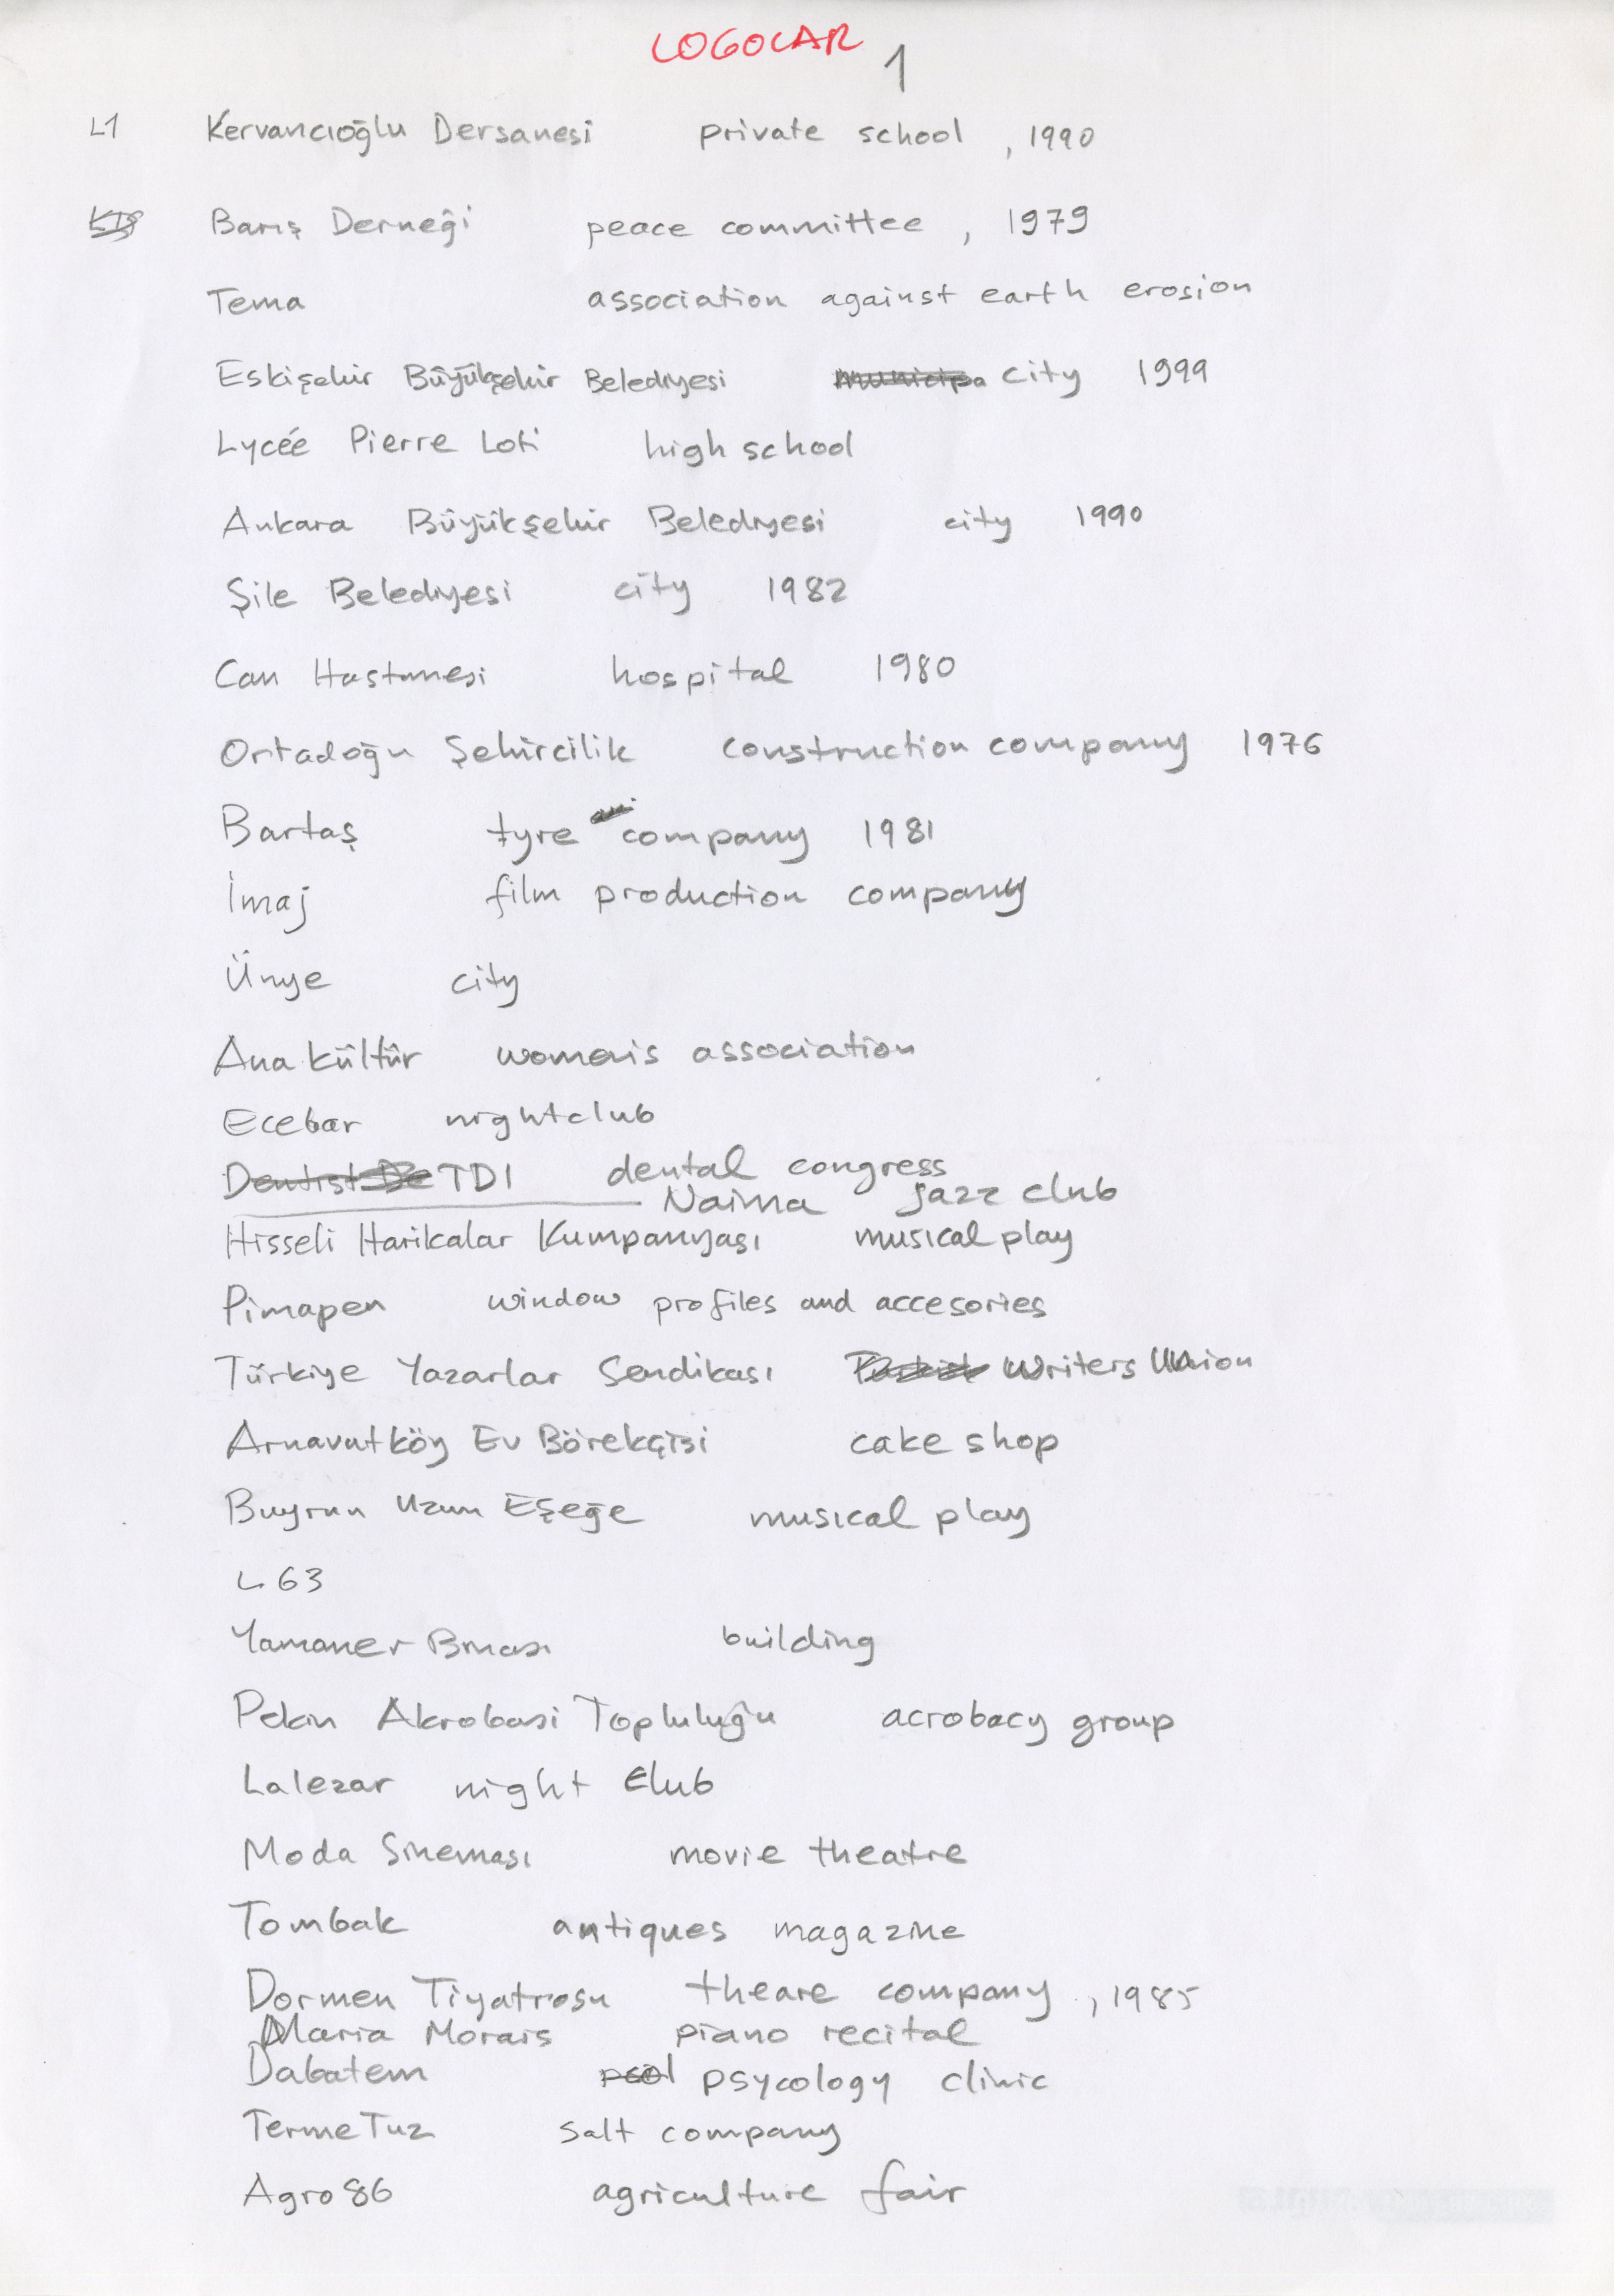 LOGOLAR 1
L1 Kervancıoğlu Dersanesi private school , 1990
Barış Derneği peace committee , 1979
Tema association against earth erosion
Eskişehir Büyükşehir Belediyesi city 1999
Lycée Pierre Loti high school
Ankara Büyükşehir Belediyesi city 1990
Şile Belediyesi city 1982
Can Hastanesi hospital 1980
Ortadoğu Şehircilik construction company 1976
Bartaş tyre company 1981
İmaj film production company
Ünye city
Ana kültür women's association
Ecebar nightclub
TDI dental congress
Naima jazz club
Hisseli Harikalar Kumpanyası musical play
Pimapen window profiles and accesories
Türkiye Yazarlar Sendikası Writers Union
Arnavutköy Ev Börekçisi cake shop
Buyrun Uzun Eşeğe musical play
L 63
Yamaner Binası building
Pekin Akrobasi Topluluğu acrobacy group
Lalezar night club
Moda Sineması movie theatre
Tombak antiques magazine
Dormen Tiyatrosu theare company , 1985
Maria Morais piano recital
Dabatem psycology clinic
Terme Tuz salt company
Agro 86 agriculture fair